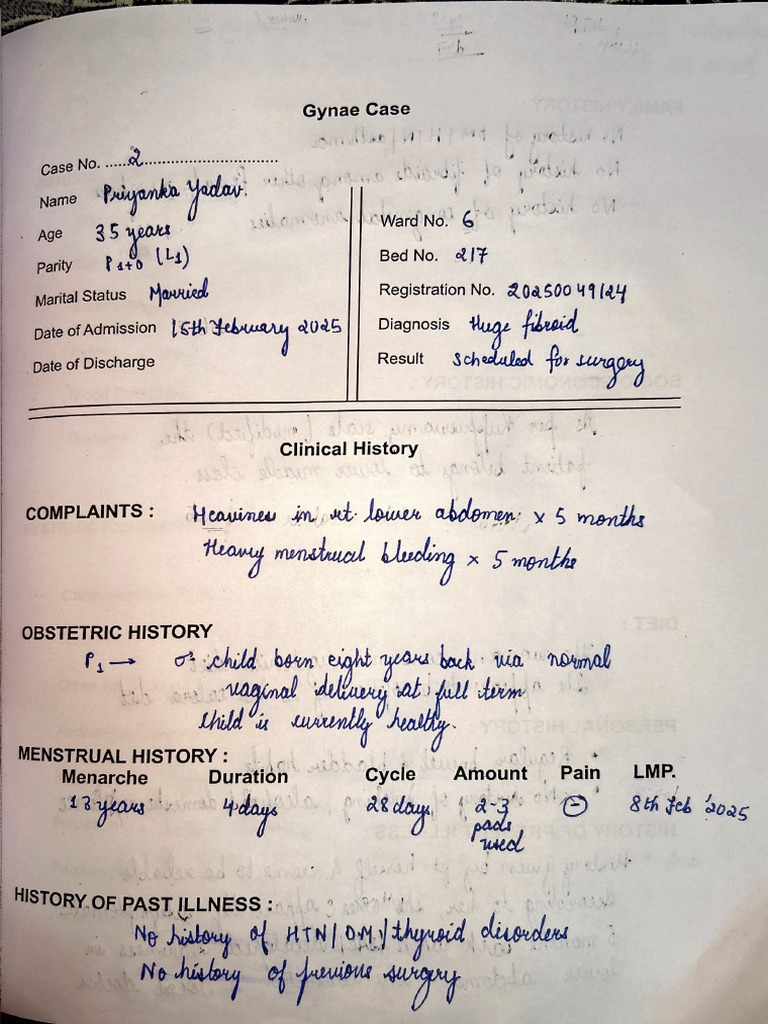 Gynae Case
Case No. ...2...
Name Priyanka Yadav.
Age 35 years
Parity P1+0 (L1)
Marital Status Married
Date of Admission 15th February 2025
Date of Discharge
Ward No. 6
Bed No. 217
Registration No. 20250049124
Diagnosis Huge fibroid
Result Scheduled for surgery
Clinical History
COMPLAINTS : Heaviness in rt. lower abdomen x 5 months
Heavy menstrual bleeding x 5 months
OBSTETRIC HISTORY
P1 → ♂ child born eight years back via normal
vaginal delivery at full term
Child is currently healthy.
MENSTRUAL HISTORY :
Menarche Duration Cycle Amount Pain LMP.
13 years 4 days 28 days 2-3 ⊖ 8th Feb '2025
pads
used
HISTORY OF PAST ILLNESS :
No history of HTN/DM/thyroid disorders
No history of previous surgery